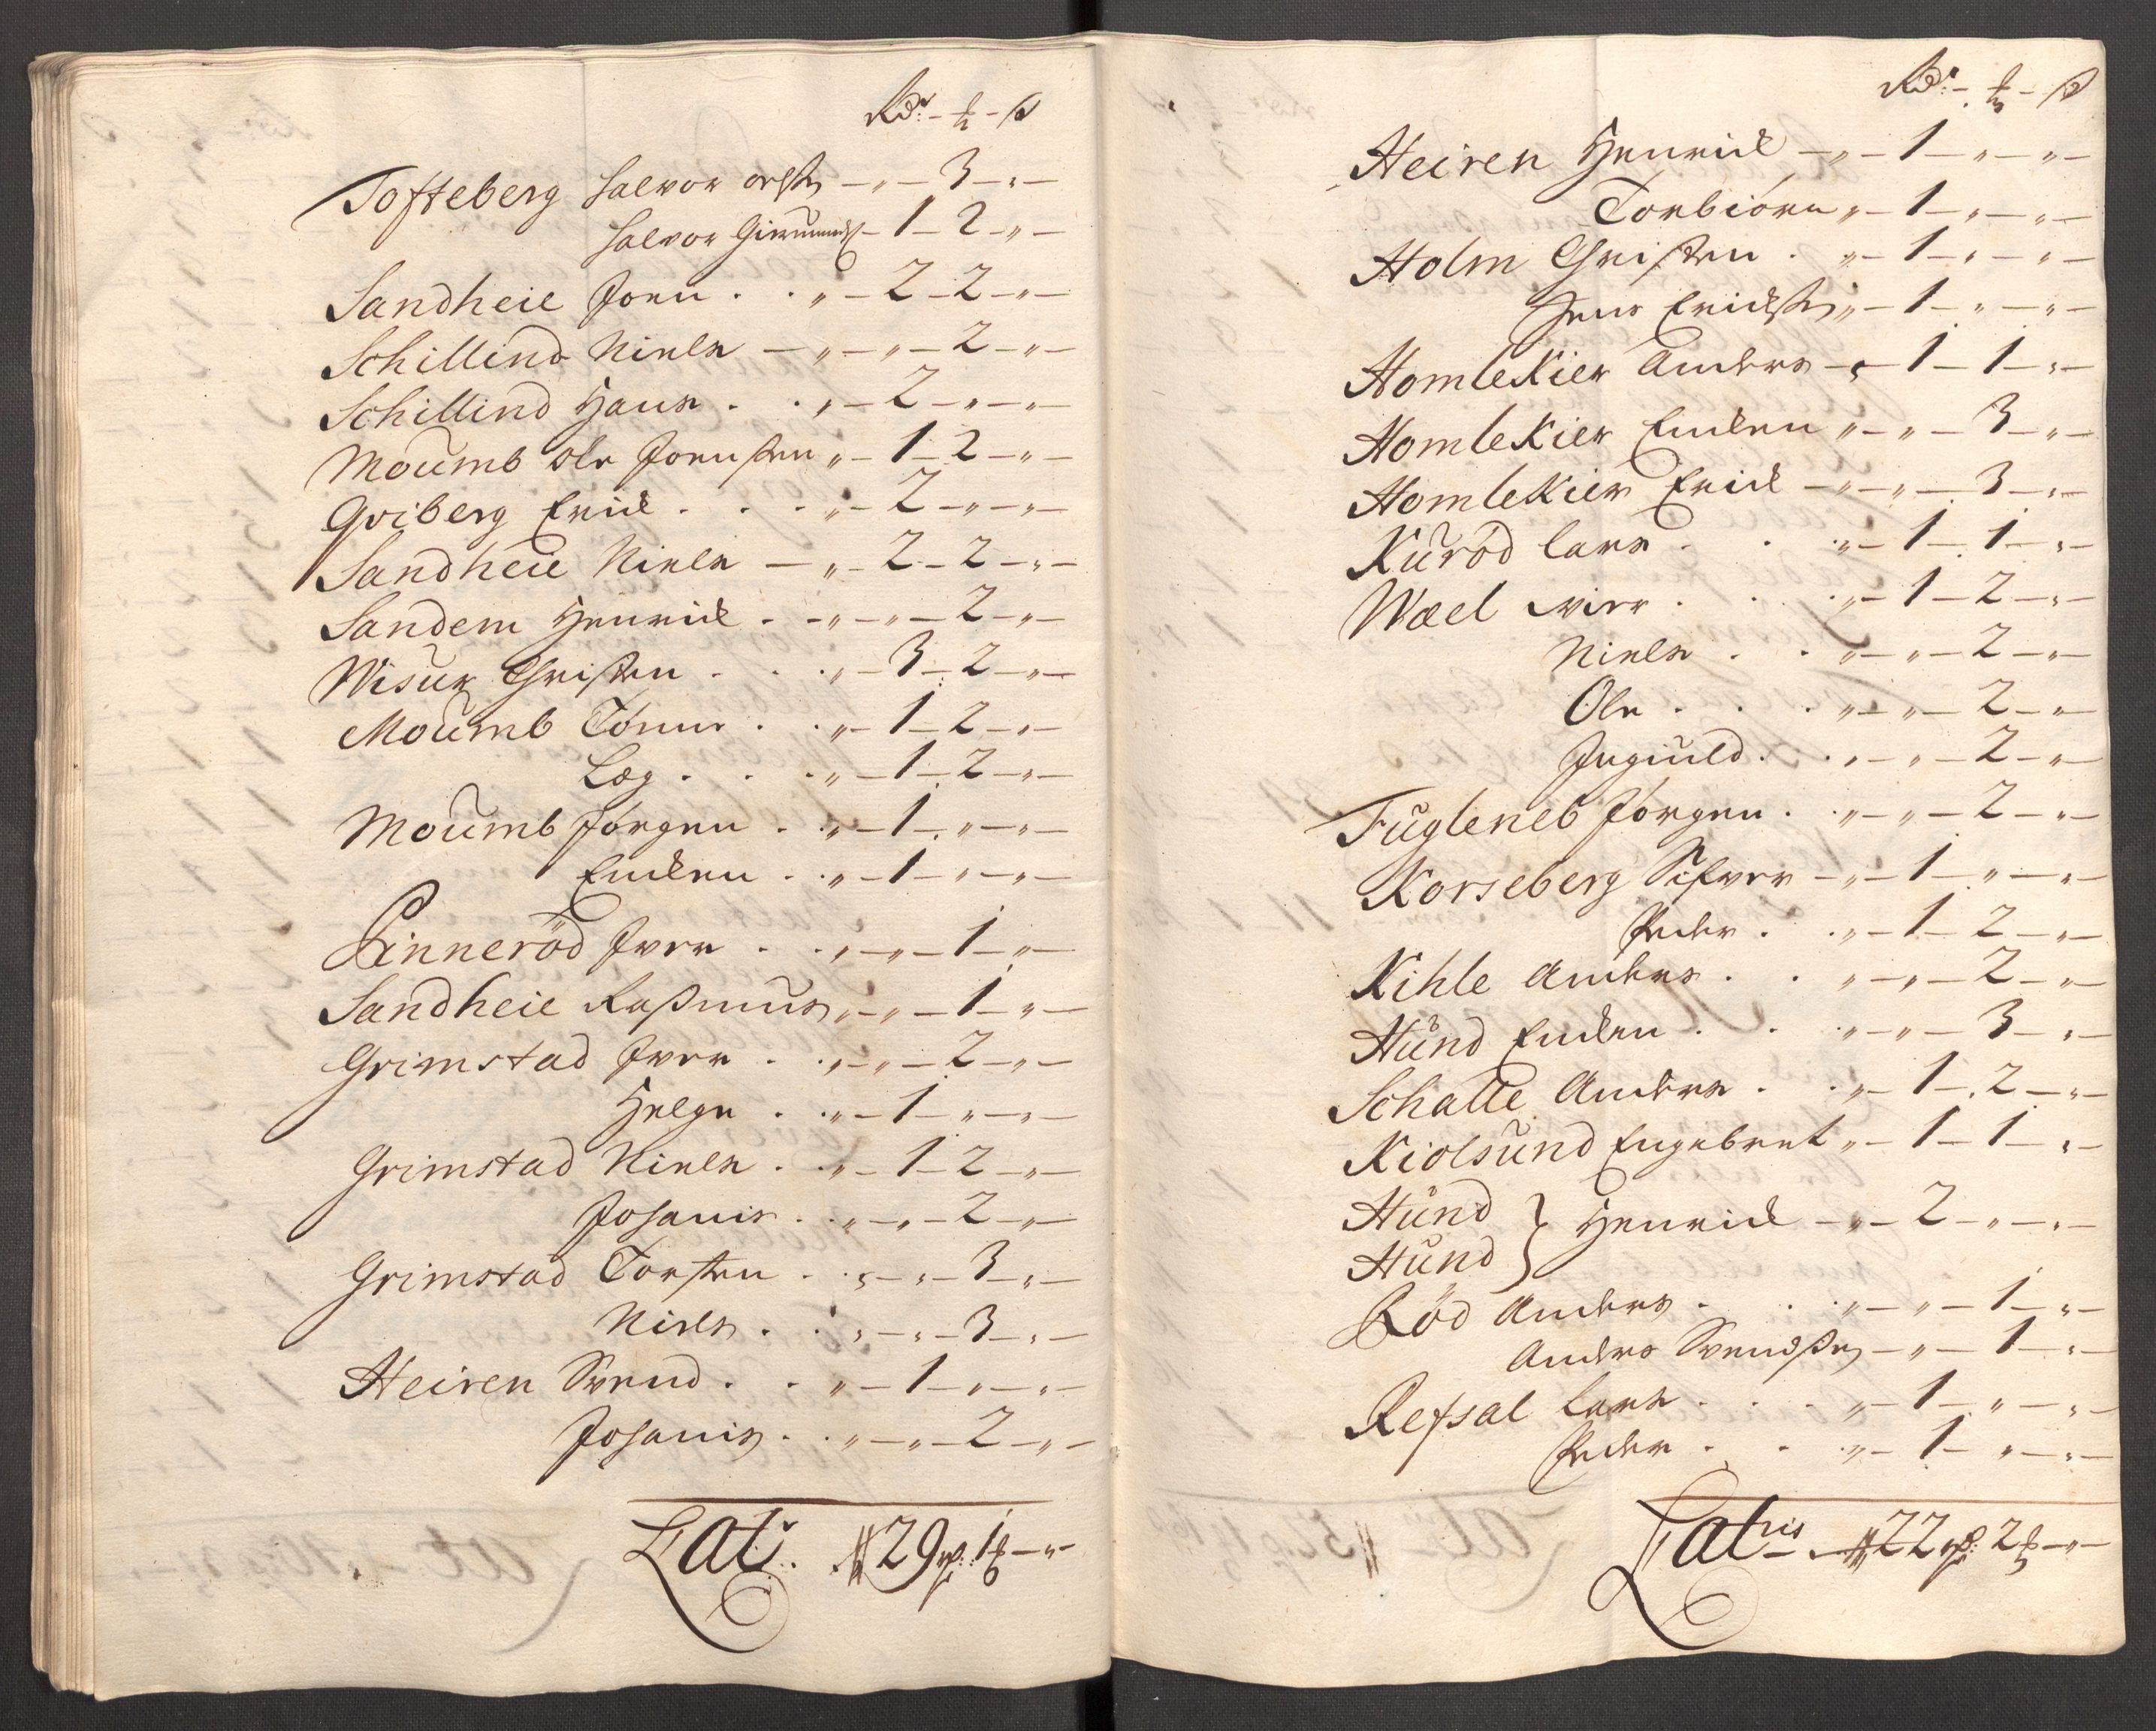 Rdr. – ƒ – ß
Tofteberg Halvor Olß. – „ – 3 – „ –
Halvor – 1 – 2 – „ –
Sandheie Joen . . „ – 2 – 2 – „ –
Schillind Niels – „ – „ – 2 – „ –
Schillind Hans . . „ – 2 – „ – „ –
Moumb Ole Joensten „ – 1 – 2 – „ –
Qviberg Erick . . . „ – 2 – „ – „ –
Sandheie Niels – „ – 2 – 2 – „ –
Sandem Henrick . – „ – „ – 2 – „ –
Wisur Christen . . . „ – 3 – 2 – „ –
Moumb Tønnes . . „ – 1 – 2 – „ –
Log . . . „ – 1 – 2 – „ –
Moumb Jørgen . . „ – 1 – „ – „ –
Endren . . „ – 1 – „ – „ –
Linnerød Iver . . „ – „ – 1 – „ –
Sandheie Raßmus „ – „ – 1 – „ –
Grimstad Iver . . „ – „ – 2 – „ –
Helge . . „ – 1 – „ – „ –
Grimstad Niels . . „ – 1 – 2 – „ –
Johanis . . „ – „ – 2 – „ –
Grimstad Torsten . . „ – „ – 3 – „ –
Niels . . „ – „ – 3 – „ –
Heiren Svend . . „ – 1 – „ – „ –
Johanis . . „ – „ – 2 – „ –
Latr. 29 1 – „ –
Rdr. – ƒ – ß
Heiren Henrick – „ – 1 – „ – „ –
Torbiørn „ – 1 – „ – „ –
Holm Christen . „ – 1 – „ – „ –
Jens Erichß. „ – 1 – „ – „ –
Homlekier Anders – „ – 1 – 1 – „ –
Homlekier Endren „ – „ – 3 – „ –
Homlekier Erick – „ – „ – 3 – „ –
Kurød Lars . . . „ – 1 – 1 – „ –
Wæel Iver . . . „ – 1 – 2 – „ –
Niels . . „ – „ – 2 – „ –
Ole . . . „ – „ – 2 – „ –
Inguld . . „ – „ – 2 – „ –
Fugleneb Jørgen . . „ – „ – 2 – „ –
Korseberg Sifver – „ – 1 – „ – „ –
Peder . . „ – 1 – 2 – „ –
Kihle Anders . . „ – „ – 2 – „ –
Hund Endren . . . „ – „ – 3 – „ –
Schalle Anders . . „ – 1 – 2 – „ –
Kiolsund Engebret „ – 1 – 1 – „ –
Hund } Henrick – „ – 2 – „ – „ –
Hund
Rød Anders . . . „ – „ – 1 – „ –
Anders Svendßen – „ – 1 – „ –
Refsal Lars . . . „ – 1 – „ – „ –
Peder . . . „ – 1 – „ – „ –
Latris 22 2 – „ –